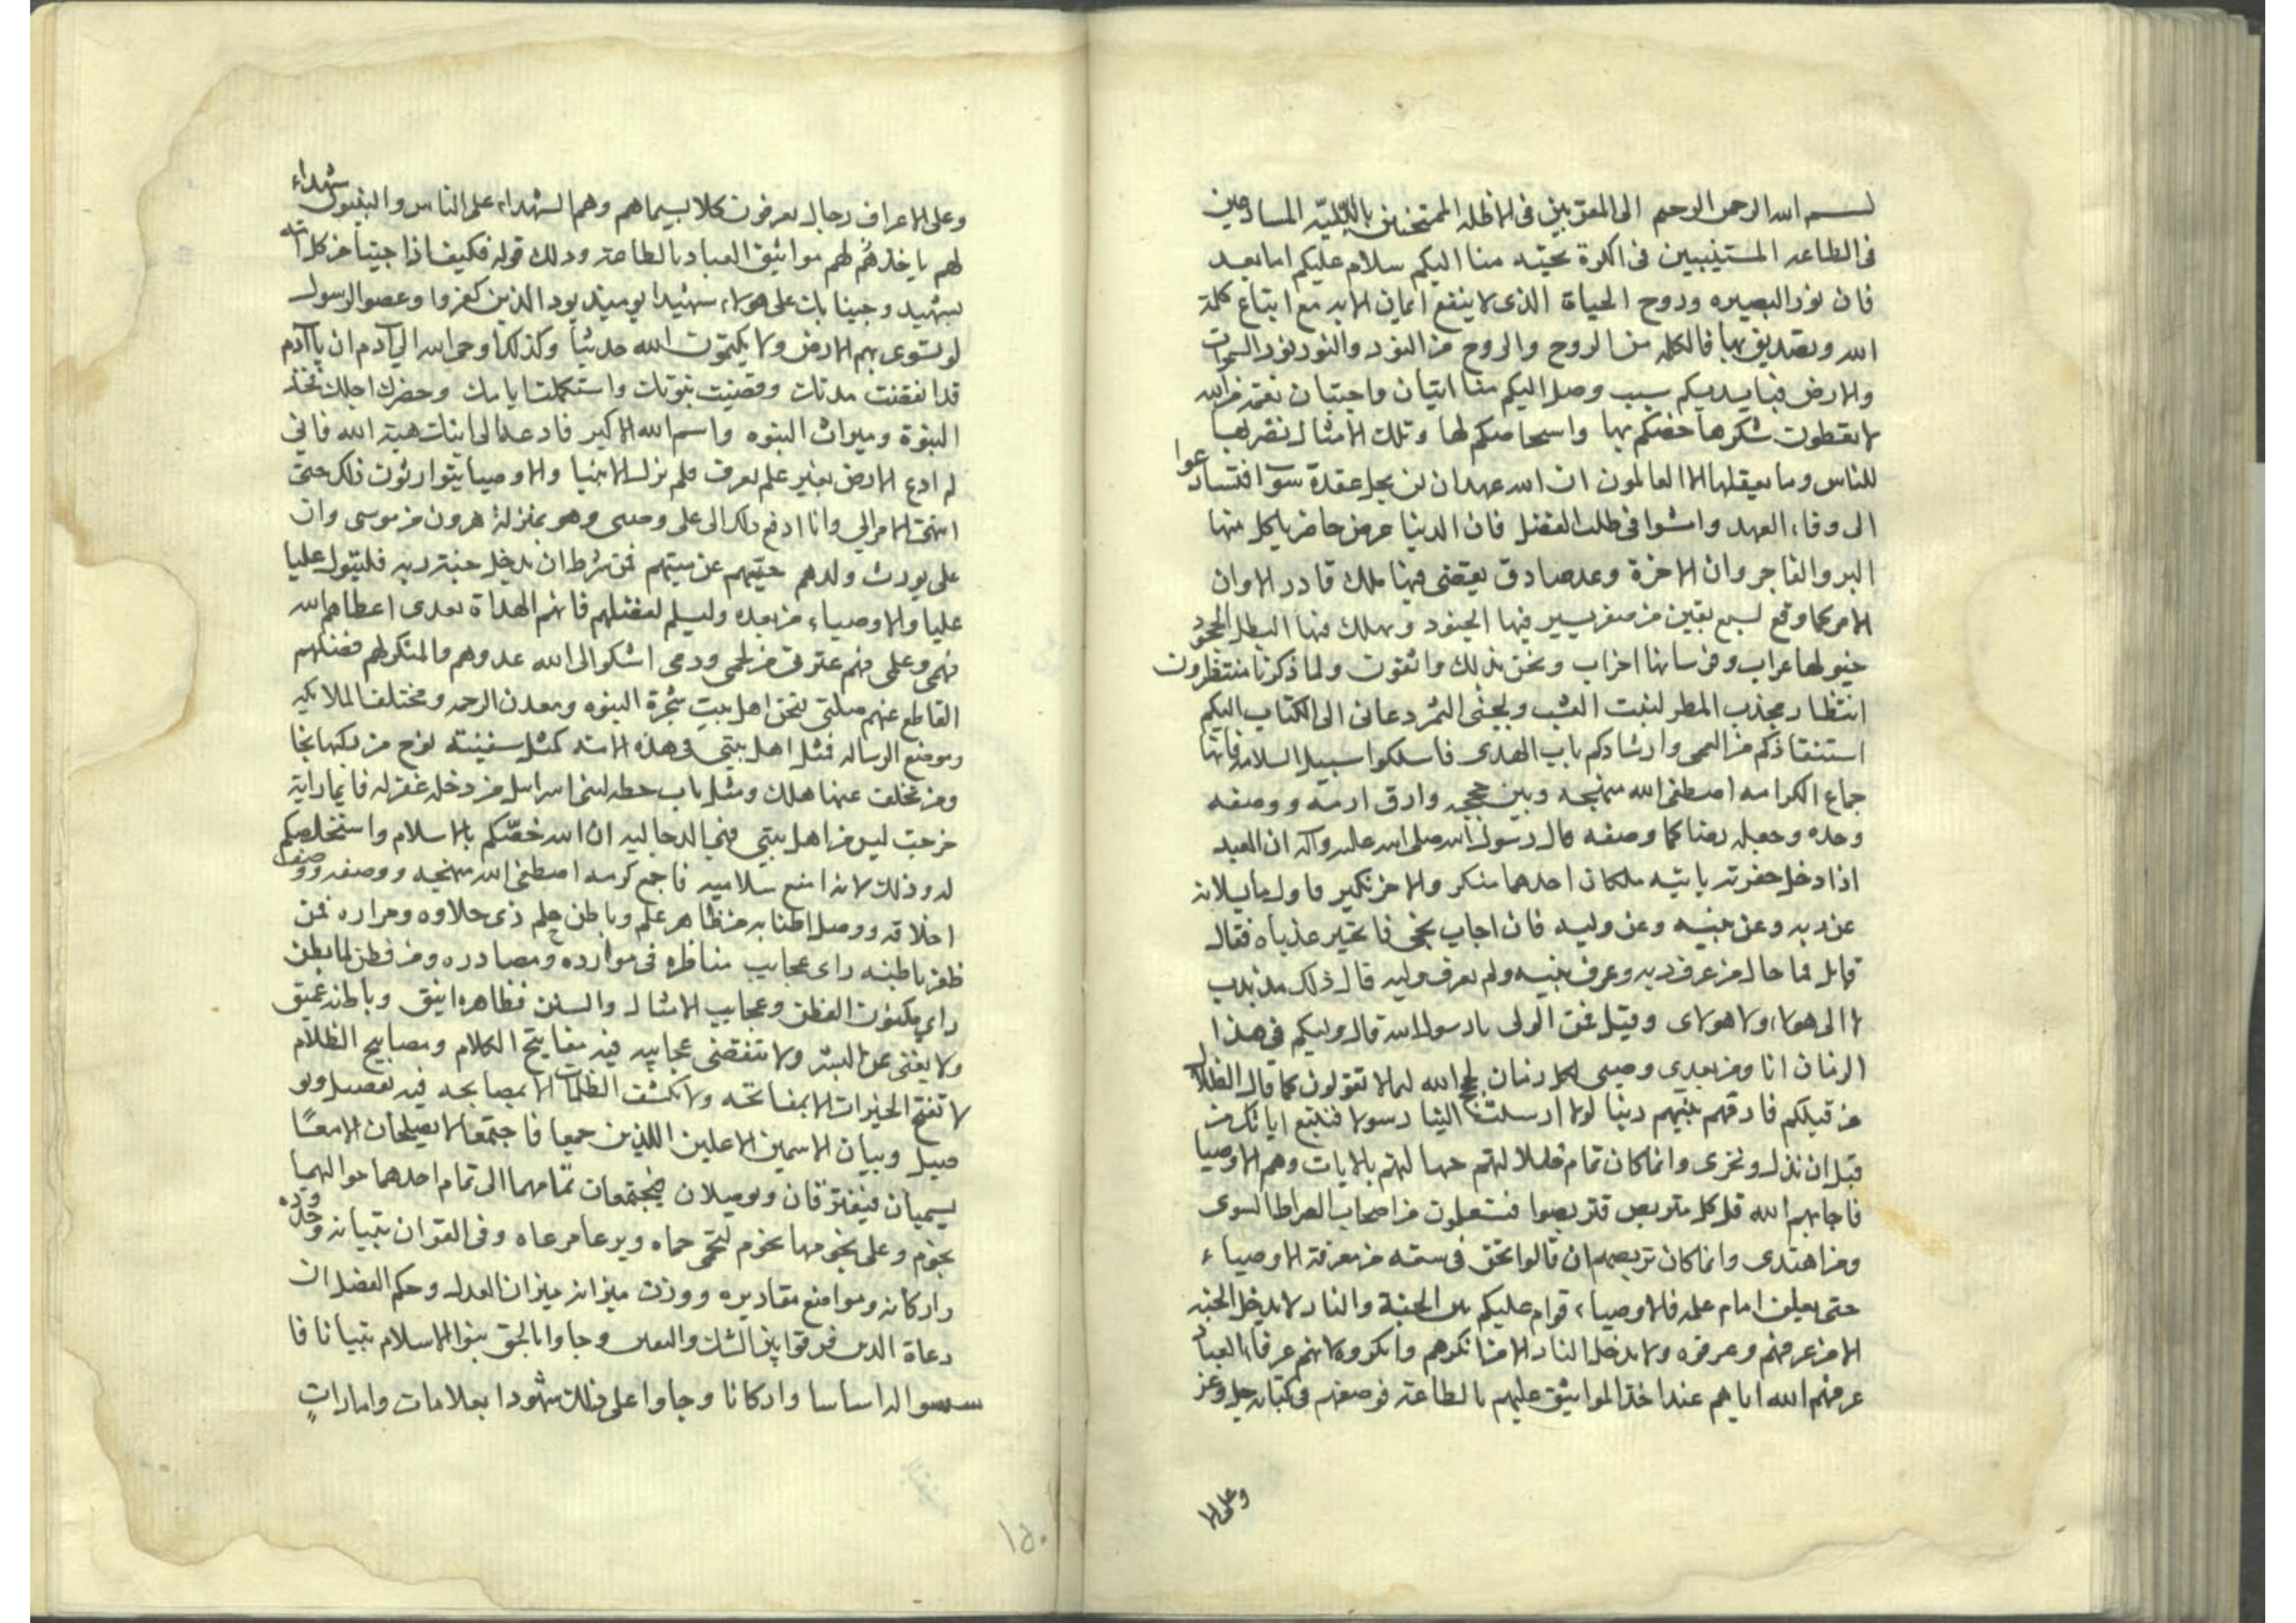 بسم الله الرحمن الرحيم الى المقربين فى الاظله الممتحنين بالبليّه المسارعين
فى الطاعه المستيقنين فى الكرة تحيّه منا اليكم سلام عليكم اما بعد
فان نور البصيره وروح الحياة الذى لا ينفع ايمان الا به مع اتباع كلمة
الله وتصديق بها فالكلمه من الروح والروح من النور والنور نور السموات
والارض فبايديكم سبب وصل اليكم منا اتيان واجتبان نعمة من الله
لا تعقلون شكرها خصّكم بها واستخلصكم لها وتلك الامثال نضربها
للناس وما يعقلها الا العالمون ان الله عهد ان لن يحل عقدة سوآ فتسارعوا
الى وفاء العهد وامشوا فى طلب الفضل فان الدنيا عرض حاضر ياكل منها
البر والفاجر وان الاخرة وعد صادق يقضى فيها ملك قادر الا وان
الامر كما وقع لسبع بقين من صفر يسير فيها الجنود ويهلك فيها البطل الجحود
خيولها عراب وفرسانها احزاب ونحن بذلك واثقون ولما ذكرنا منتظرون
انتظار مجذب المطر لينبت العشب ويجنى الثمر دعانى الى الكتاب اليكم
استنقاذكم من العمى وارشادكم باب الهدى فاسلكوا سبيل السلامه فانها
جماع الكرامه اصطفى الله منهجه وبين حججه وارف ارفه ووصفه
وحده وجعله رصا كما وصفه قال رسول الله صلى الله عليه وآله ان العبد
اذا دخل حفرته ياتيه ملكان احدهما منكر والاخر نكير فاول ما يسلانه
عن ربه وعن نبيه وعن وليه فان اجاب نجى فان تحير عذباه فقال
قائل فما حال من عرف ربه وعرف نبيه ولم يعرف وليه قال ذلك مذبذب
لا الى هولاء ولا هولاى وقيل فمن الولى يا رسول الله قال وليكم فى هذا
الزمان انا ومن بعدى وصيى لكل زمان حجج الله لما لا تقولون كما قال الضلال
من قبلكم فارقهم نبيهم ربنا لولا ارسلت الينا رسولا فنتبع اياتك من
قبل ان نذل ونخزى وانما كان تمام ضلالتهم جهالتهم بالايات وهم الاوصيا
فاجابهم الله قل كل متربص فتربصوا فستعلمون من اصحاب الصراط السوى
ومن اهتدى وانما كان تربصهم ان قالوا نحن فى سعه من معرفة الاوصياء
حتى يعلن امام علمه فالاوصياء قوام عليكم بين الجنة والنار لا يدخل الجنه
الا من عرفهم وعرفوه ولا يدخل النار الا من انكرهم وانكروه لانهم عرفاء العباد
عرفهم الله اياهم عند اخذ المواثيق عليهم بالطاعة فوصفهم فى كتابه جل وعز
وعلى الا
وعلى الاعراف رجال يعرفون كلا بسيماهم وهم الشهداء على الناس والنبيون شهداء
لهم باخذهم لهم مواثيق العباد بالطاعة وذلك قوله فكيف اذا جينا من كل امه
بشهيد وجينا بك على هولاء شهيدا يوميذ يود الذين كفروا وعصوا الرسول
لو تسوى بهم الارض ولا يكتمون الله حديثا وكذلك اوحى الله الى آدم ان يا آدم
قد انقضت مدتك وقضيت نبوتك واستكملت ايامك وحضرك اجلك فخذ
النبوة وميراث النبوه واسم الله الاكبر فادعه الى ابنك هبة الله فانى
لم ادع الارض بغير علم يعرف فلم تزل الانبيا والاوصيا يتوارثون ذلك حتى
انتهى الامر الي وانا ادفع ذلك الى على وصيى وهو بمنزلة هرون من موسى وان
على يورث ولدهم حيّهم عن ميتهم فمن شرط ان يدخل جنة ربه فليتول عليا
عليا والاوصياء من بعده وليسلم لفضلهم فانهم الهداة بعدى اعطاهم الله
فهمى وعلمى فهم عترتى من لحمى ودمى اشكو الى الله عدوهم والمنكر لهم فضلهم
القاطع عنهم صلتى فنحن اهل بيتٍ شجرة النبوه ومعدن الرحمه ومختلف الملايكه
وموضع الرساله فمثل اهل بيتى فى هذه الامه كمثل سفينة نوح من ركبها نجا
ومن تخلف عنها هلك ومثل باب حطه لبنى اسرايل من دخله غفر له فايما راية
خرجت ليس من اهل بيتى فهى الدجاليه ان الله خصّكم بالاسلام واستخلصكم
له وذلك لانه امنع سلامه فاجمع كرمه اصطفى الله منهجه ووصفه ووصف
اخلاقه ووصل اطنابه من ظاهر علم وباطن حلم ذى حلاوه ومراره فمن
ظفر باطنه راى عجايب مناظره فى موارده ومصادره ومن فطن لما بطن
راى مكنون الفطن وعجايب الامثال والسنن فظاهره انيق وباطنه عميق
ولا يفنى غرائبه ولا تنقضى عجايبه فيه مفاتيح الكلام ومصابيح الظلام
لا تفتح الخيرات الا بمفاتحه ولا تكشف الظلمات الا بمصابحه فيه تفصيل وتو
صيل وبيان الاسمين الاعلين اللذين جمعا فاجتمعا لا يصلحان الا معًا
يسميان فيفترقان ويوصلان فيجتمعان تمامهما الى تمام احدهما حواليهما
نجوم وعلى نجومها نجوم ليحمى حماه ويرعا مرعاه وفى القرآن تبيانه وحده
واركانه ومواضع مقاديره ووزن ميزانه ميزان العدل وحكم الفصل ان
دعاة الدين فرقوا بين الشك واليقين وجاوا بالحق بنوا الاسلام بنيانا فا
سسوا له اساسا واركانا وجاوا على ذلك شهودا بعلامات وامارات
١٥٠